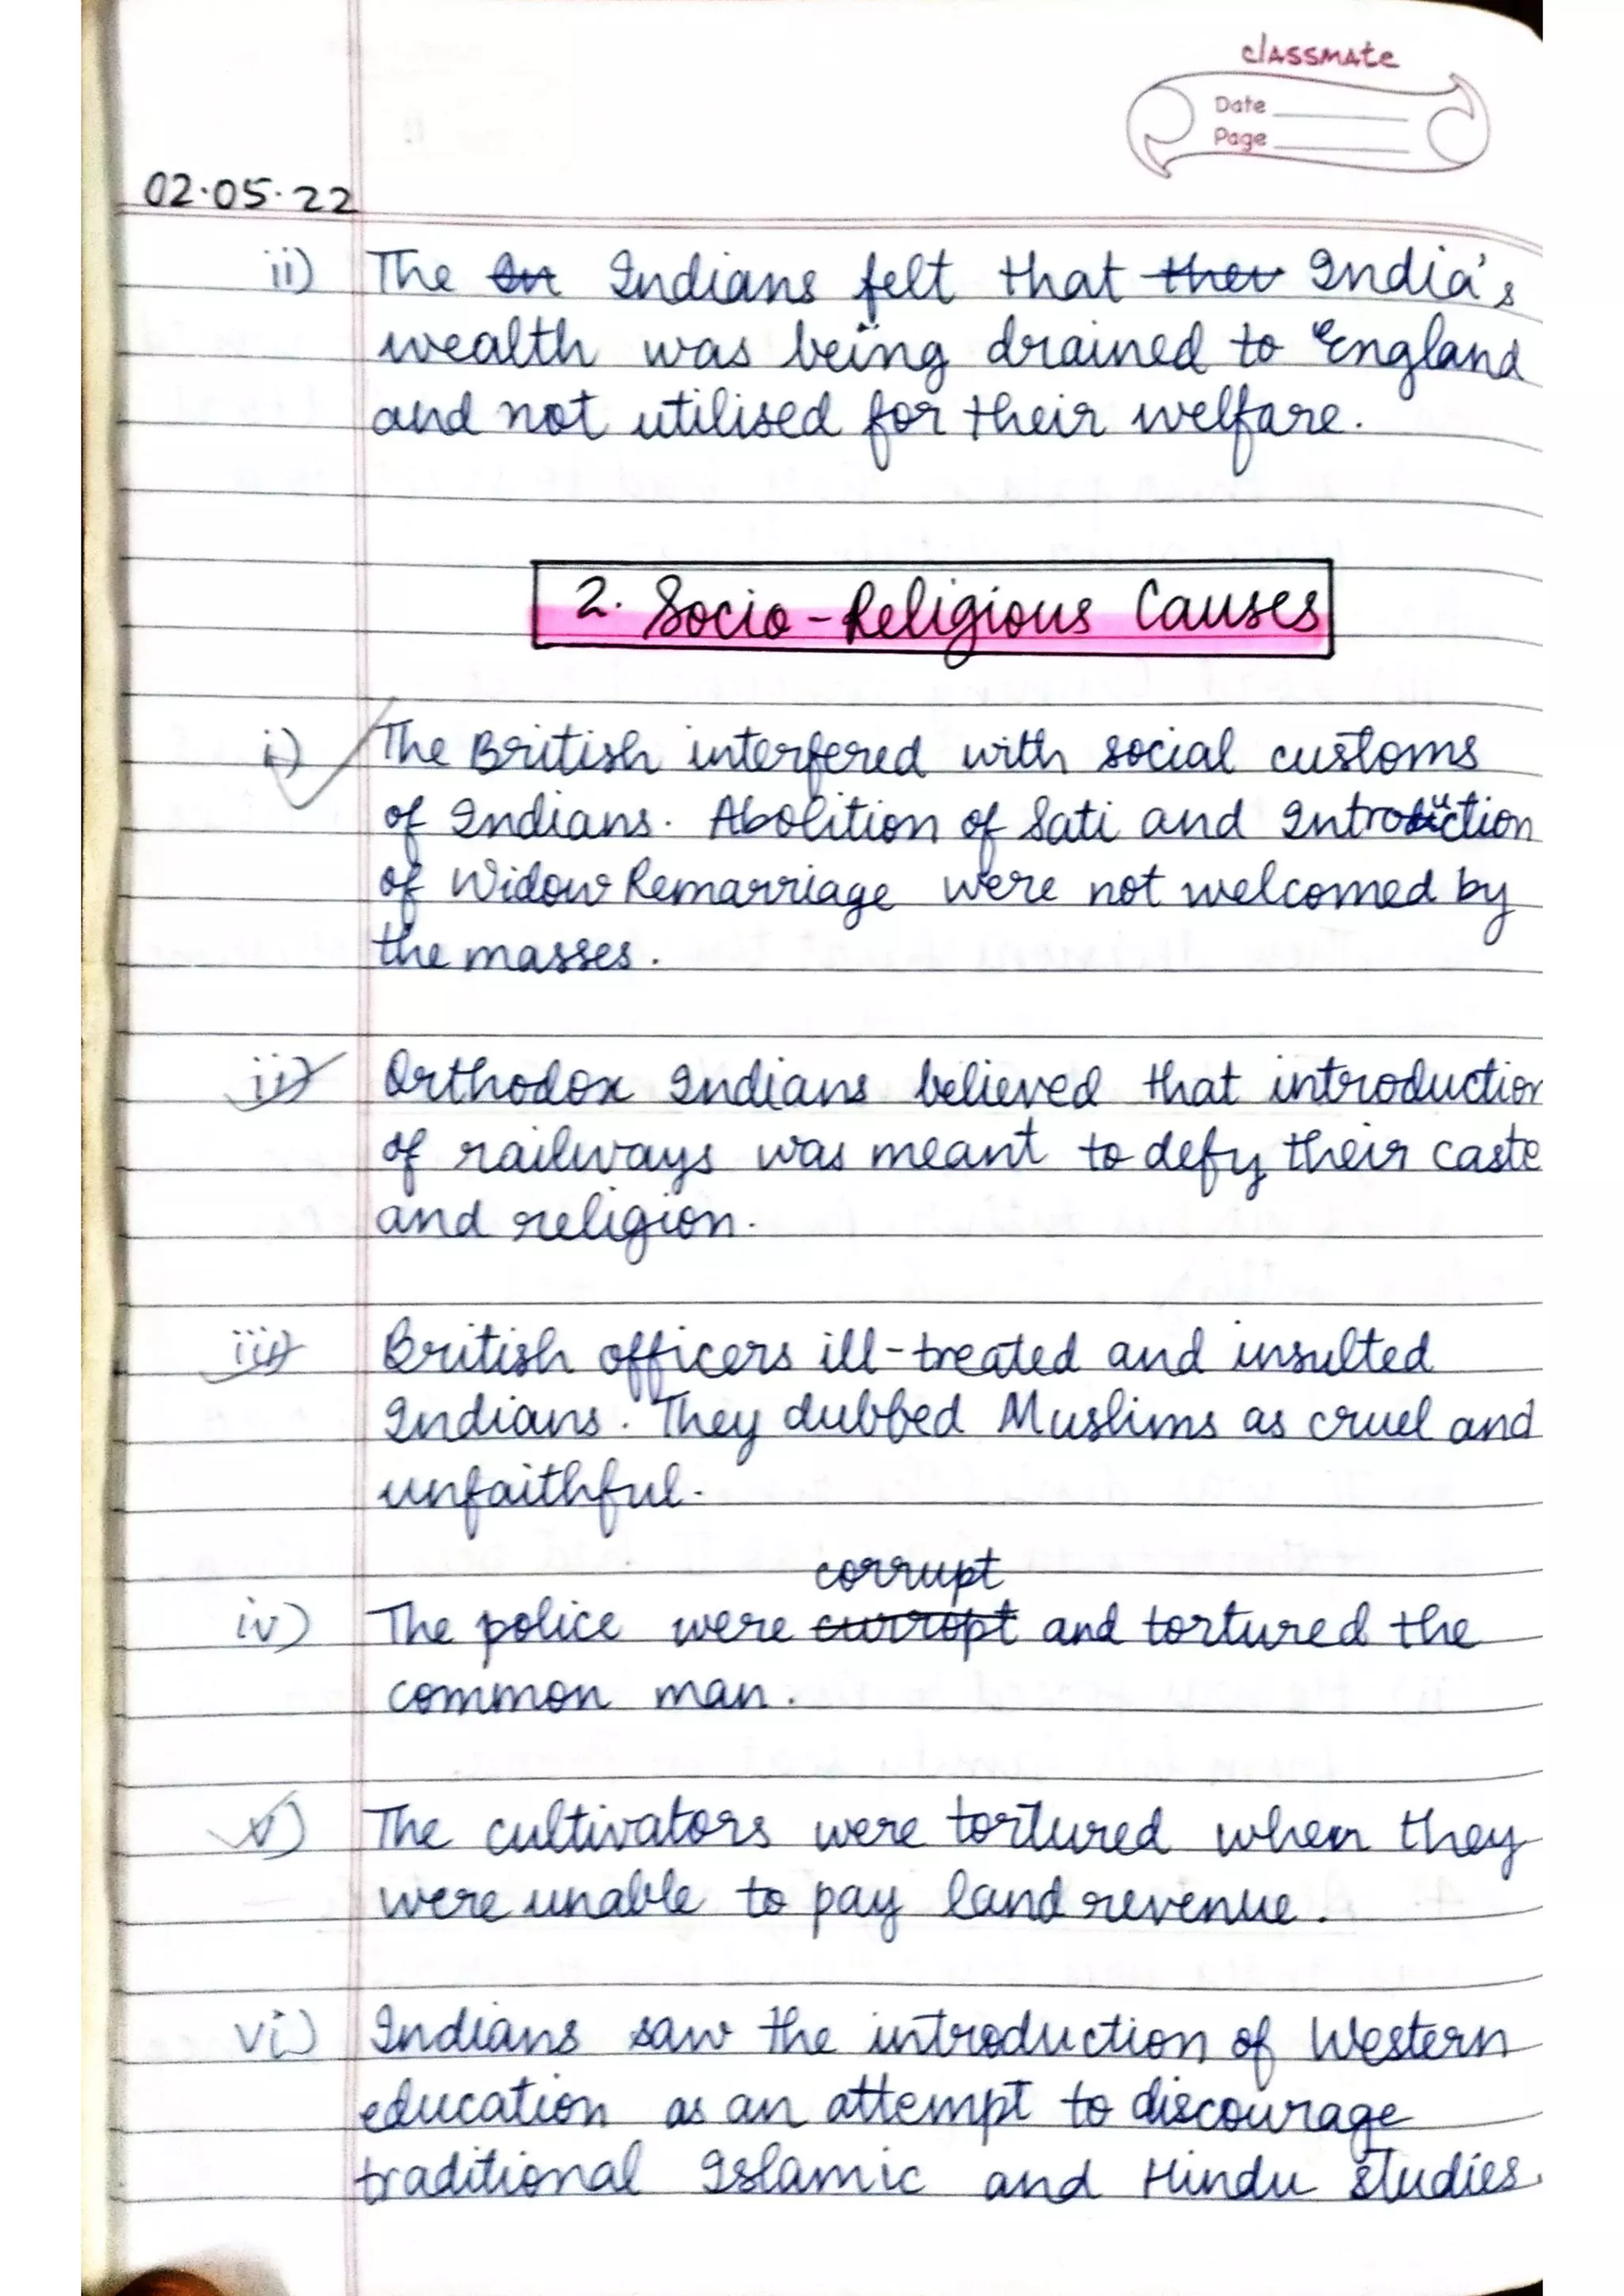 classmate
Date
Page
02.05.22
ii) The In Indians felt that their India's
wealth was being drained to England
and not utilised for their welfare.
2. Socio-Religious Causes
i) The British interfered with social customs
of Indians. Abolition of Sati and Introduction
of Widow Remarriage were not welcomed by
the masses.
ii) Orthodox Indians believed that introduction
of railways was meant to defy their caste
and religion.
iii) British officers ill-treated and insulted
Indians. They dubbed Muslims as cruel and
unfaithful.
corrupt
iv) The police were curropt and tortured the
common man.
v) The cultivators were tortured when they
were unable to pay land revenue.
vi) Indians saw the introduction of Western
education as an attempt to discourage
traditional Islamic and Hindu studies.